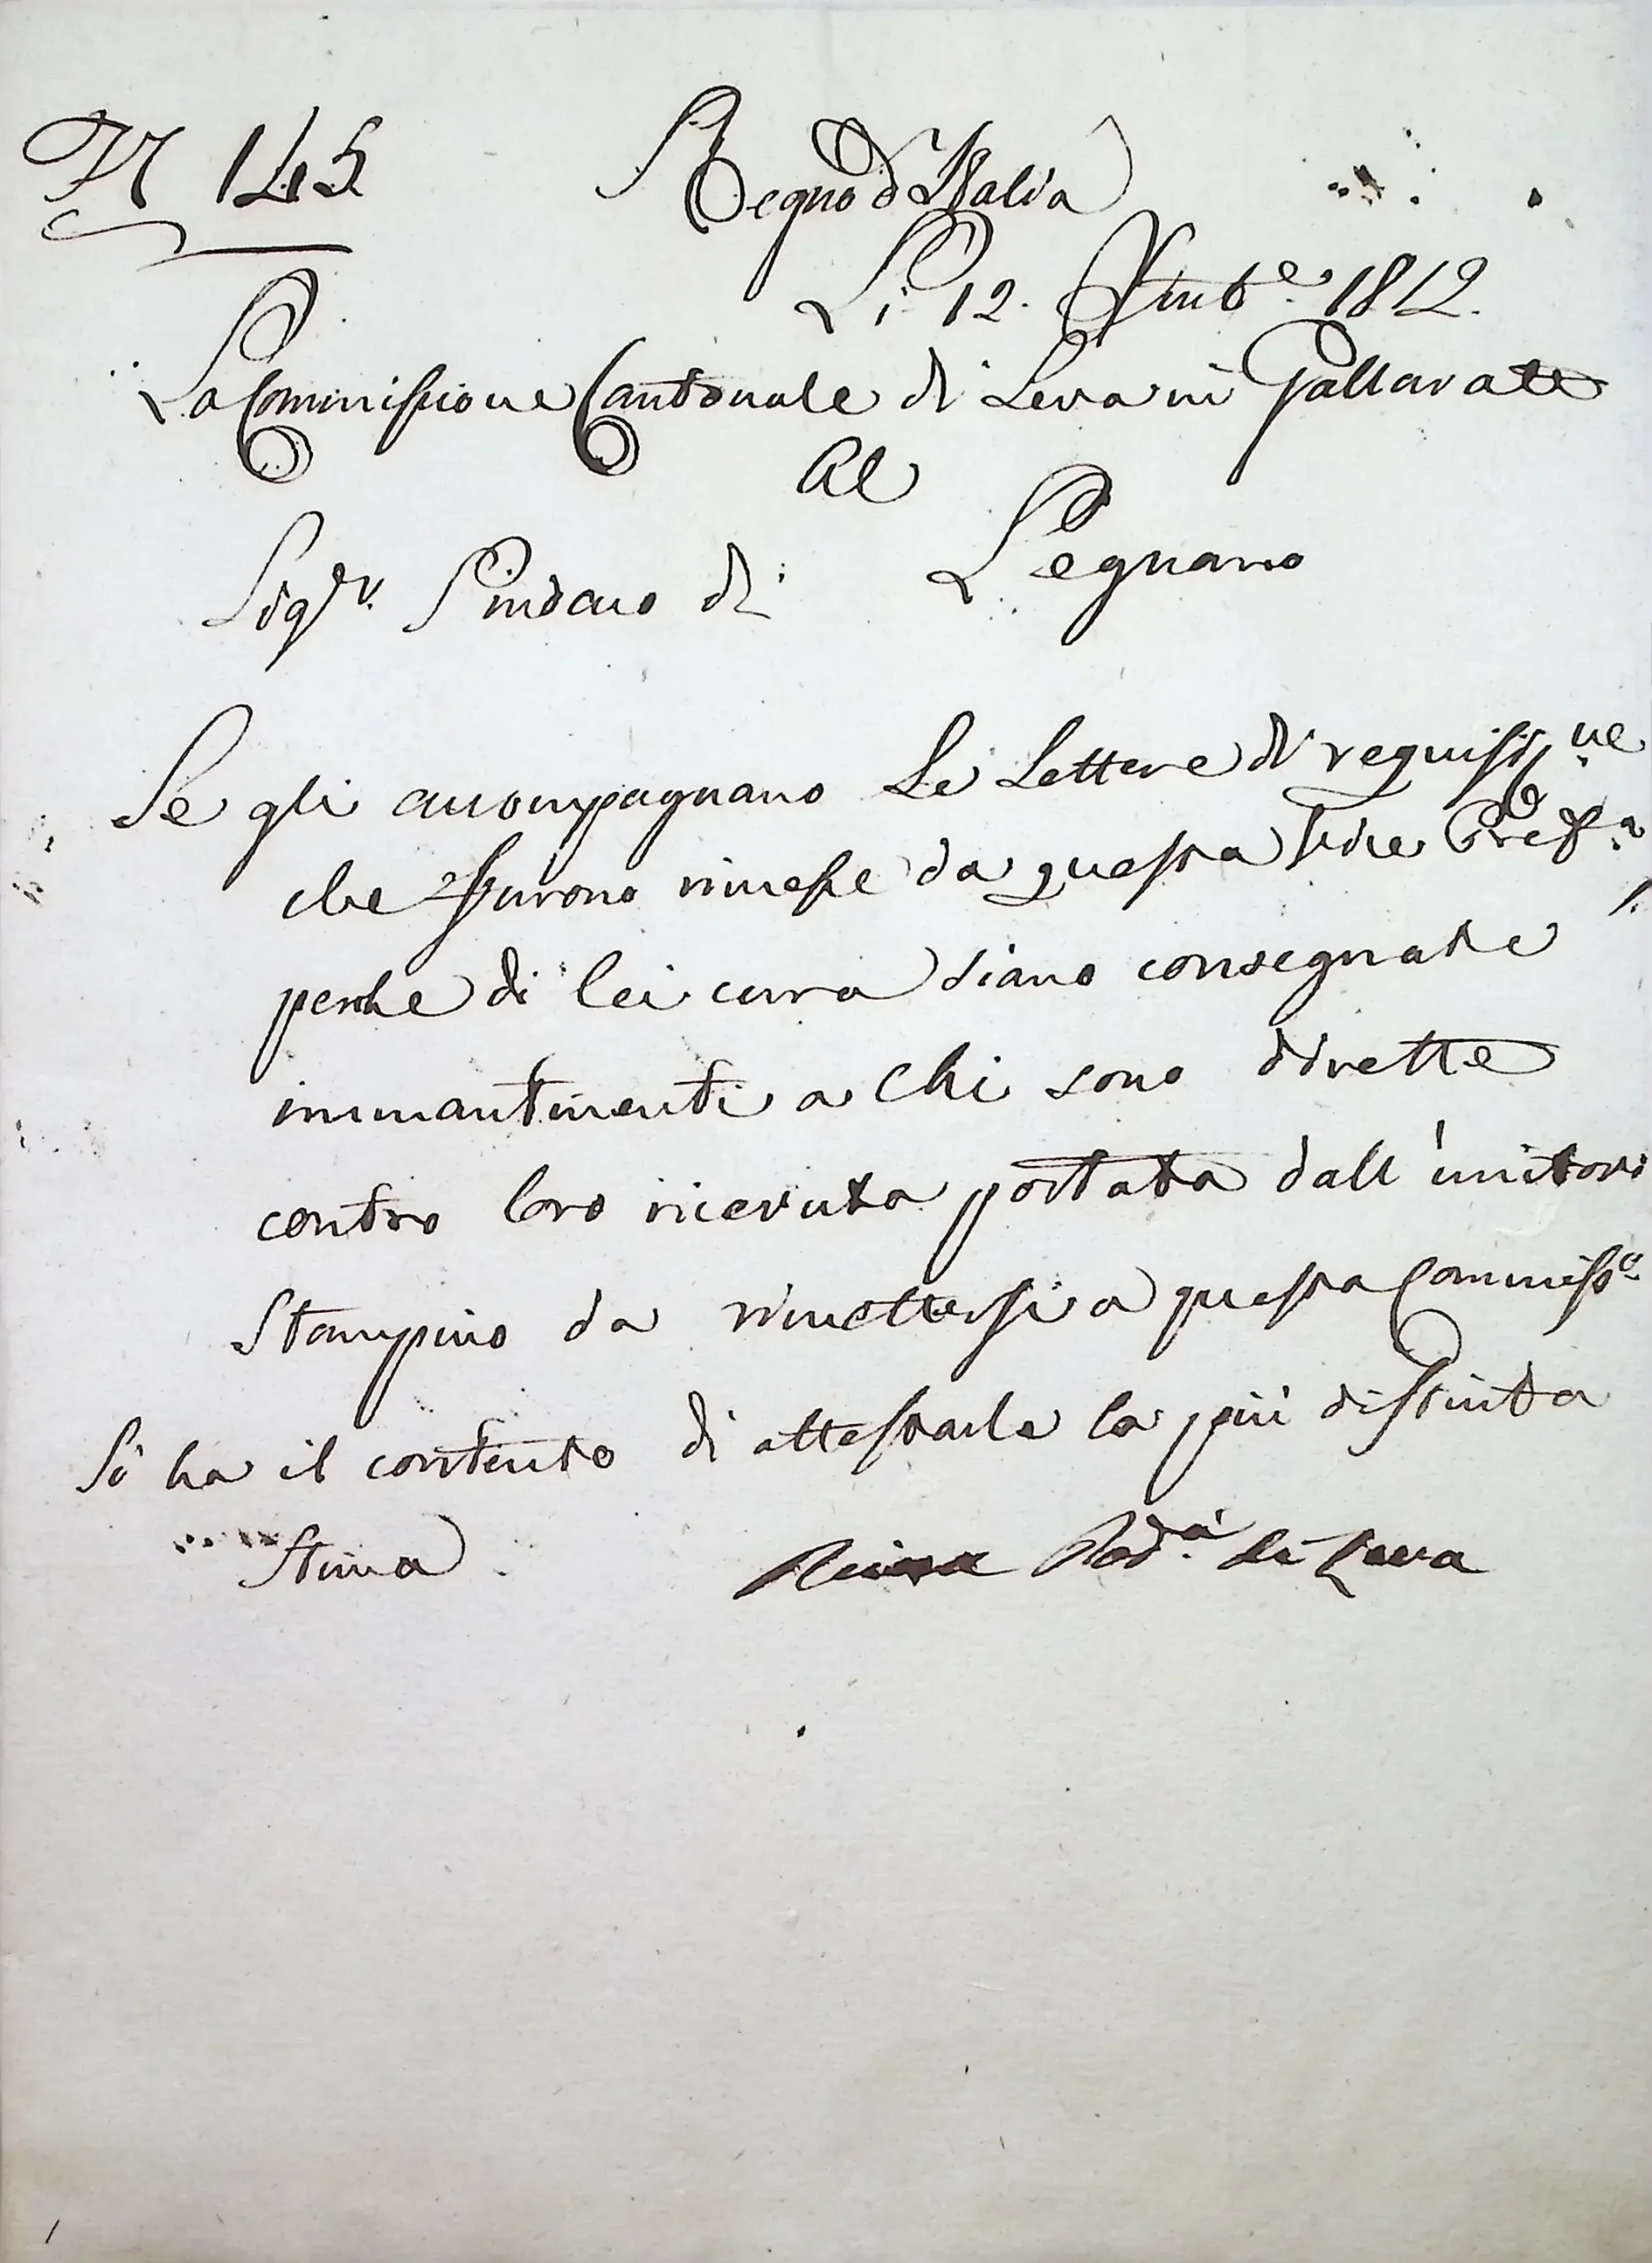 N 145
Regno d'Italia
Li 12. 1812.
La Commissione Cantonale di Leva in Gallarate
Al
Sigr. Sindaco di Legnano
Se gli accompagnano Le Lettere di requisizne
che furono rimesse da questa Vice Prefa.
perche di lei cura siano consegnate
immantinenti a chi sono dirette
contro loro ricevuta portata dall'unitovi
Stampino da rimettersi a questa Commisse.
Si ha il contento di attestarle la più distinta
Stima
di Leva